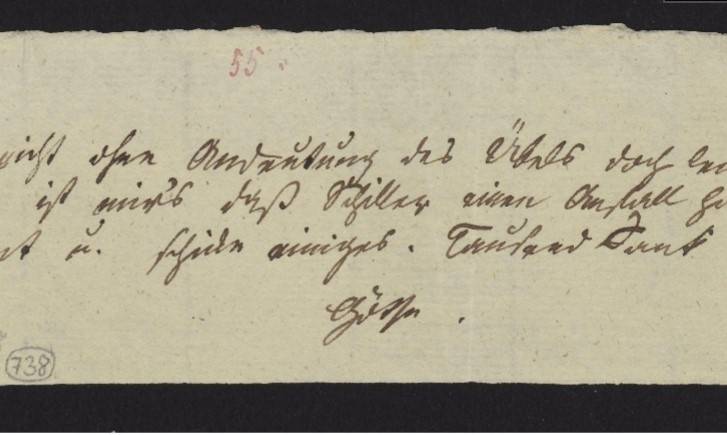 55.
nicht ohne Andeutung des Übels doch
ist mir's daß Schiller einen Anfall
u. schicke einiges. Tausend Dank
Göthe.
738